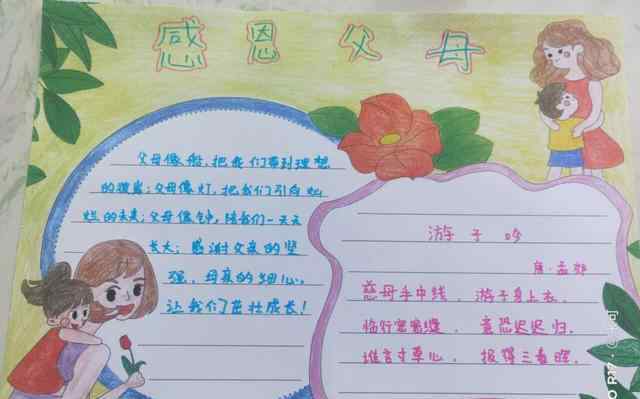 感恩父母
父母像船,把我们带到理想
的彼岸;父母像灯,把我们引向灿
烂的未来;父母像钟,陪我们一天天
长大;感谢父亲的坚
强,母亲的细心,
让我们茁壮成长!
游子吟
唐·孟郊
慈母手中线,游子身上衣。
临行密密缝,意恐迟迟归。
谁言寸草心,报得三春晖。